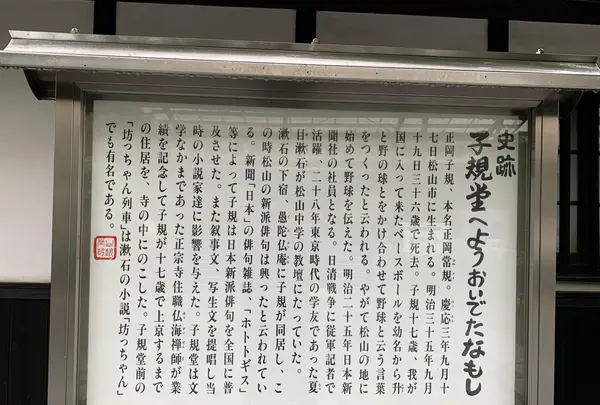 史跡
子規堂へようおいでたなもし
正岡子規、本名正岡常規。慶応三年九月十
七日松山市に生まれる。明治三十五年九月
十九日三十六歳で死去。子規十七歳、我が
国に入って来たベースボールを幼名から升
と野の球とをかけ合わせて野球と云う言葉
をつくったと云われる。やがて松山の地に
始めて野球を伝えた。明治二十五年日本新
聞社の社員となる。日清戦争に従軍記者で
活躍、二十八年東京時代の学友であった夏
目漱石が松山中学の教壇にたっていた。
漱石の下宿、愚陀仏庵に子規が同居し、こ
の時松山の新派俳句は興ったと云われてい
る。新聞「日本」の俳句雑誌、「ホトトギス」
等によって子規は日本新派俳句を全国に普
及させた。また叙事文、写生文を提唱し当
時の小説家達に影響を与えた。子規堂は文
学なかまであった正宗寺住職仏海禅師が業
績を記念して子規が十七歳で上京するまで
の住居を、寺の中にのこした。子規堂前の
「坊っちゃん列車」は漱石の小説「坊っちゃん」
でも有名である。